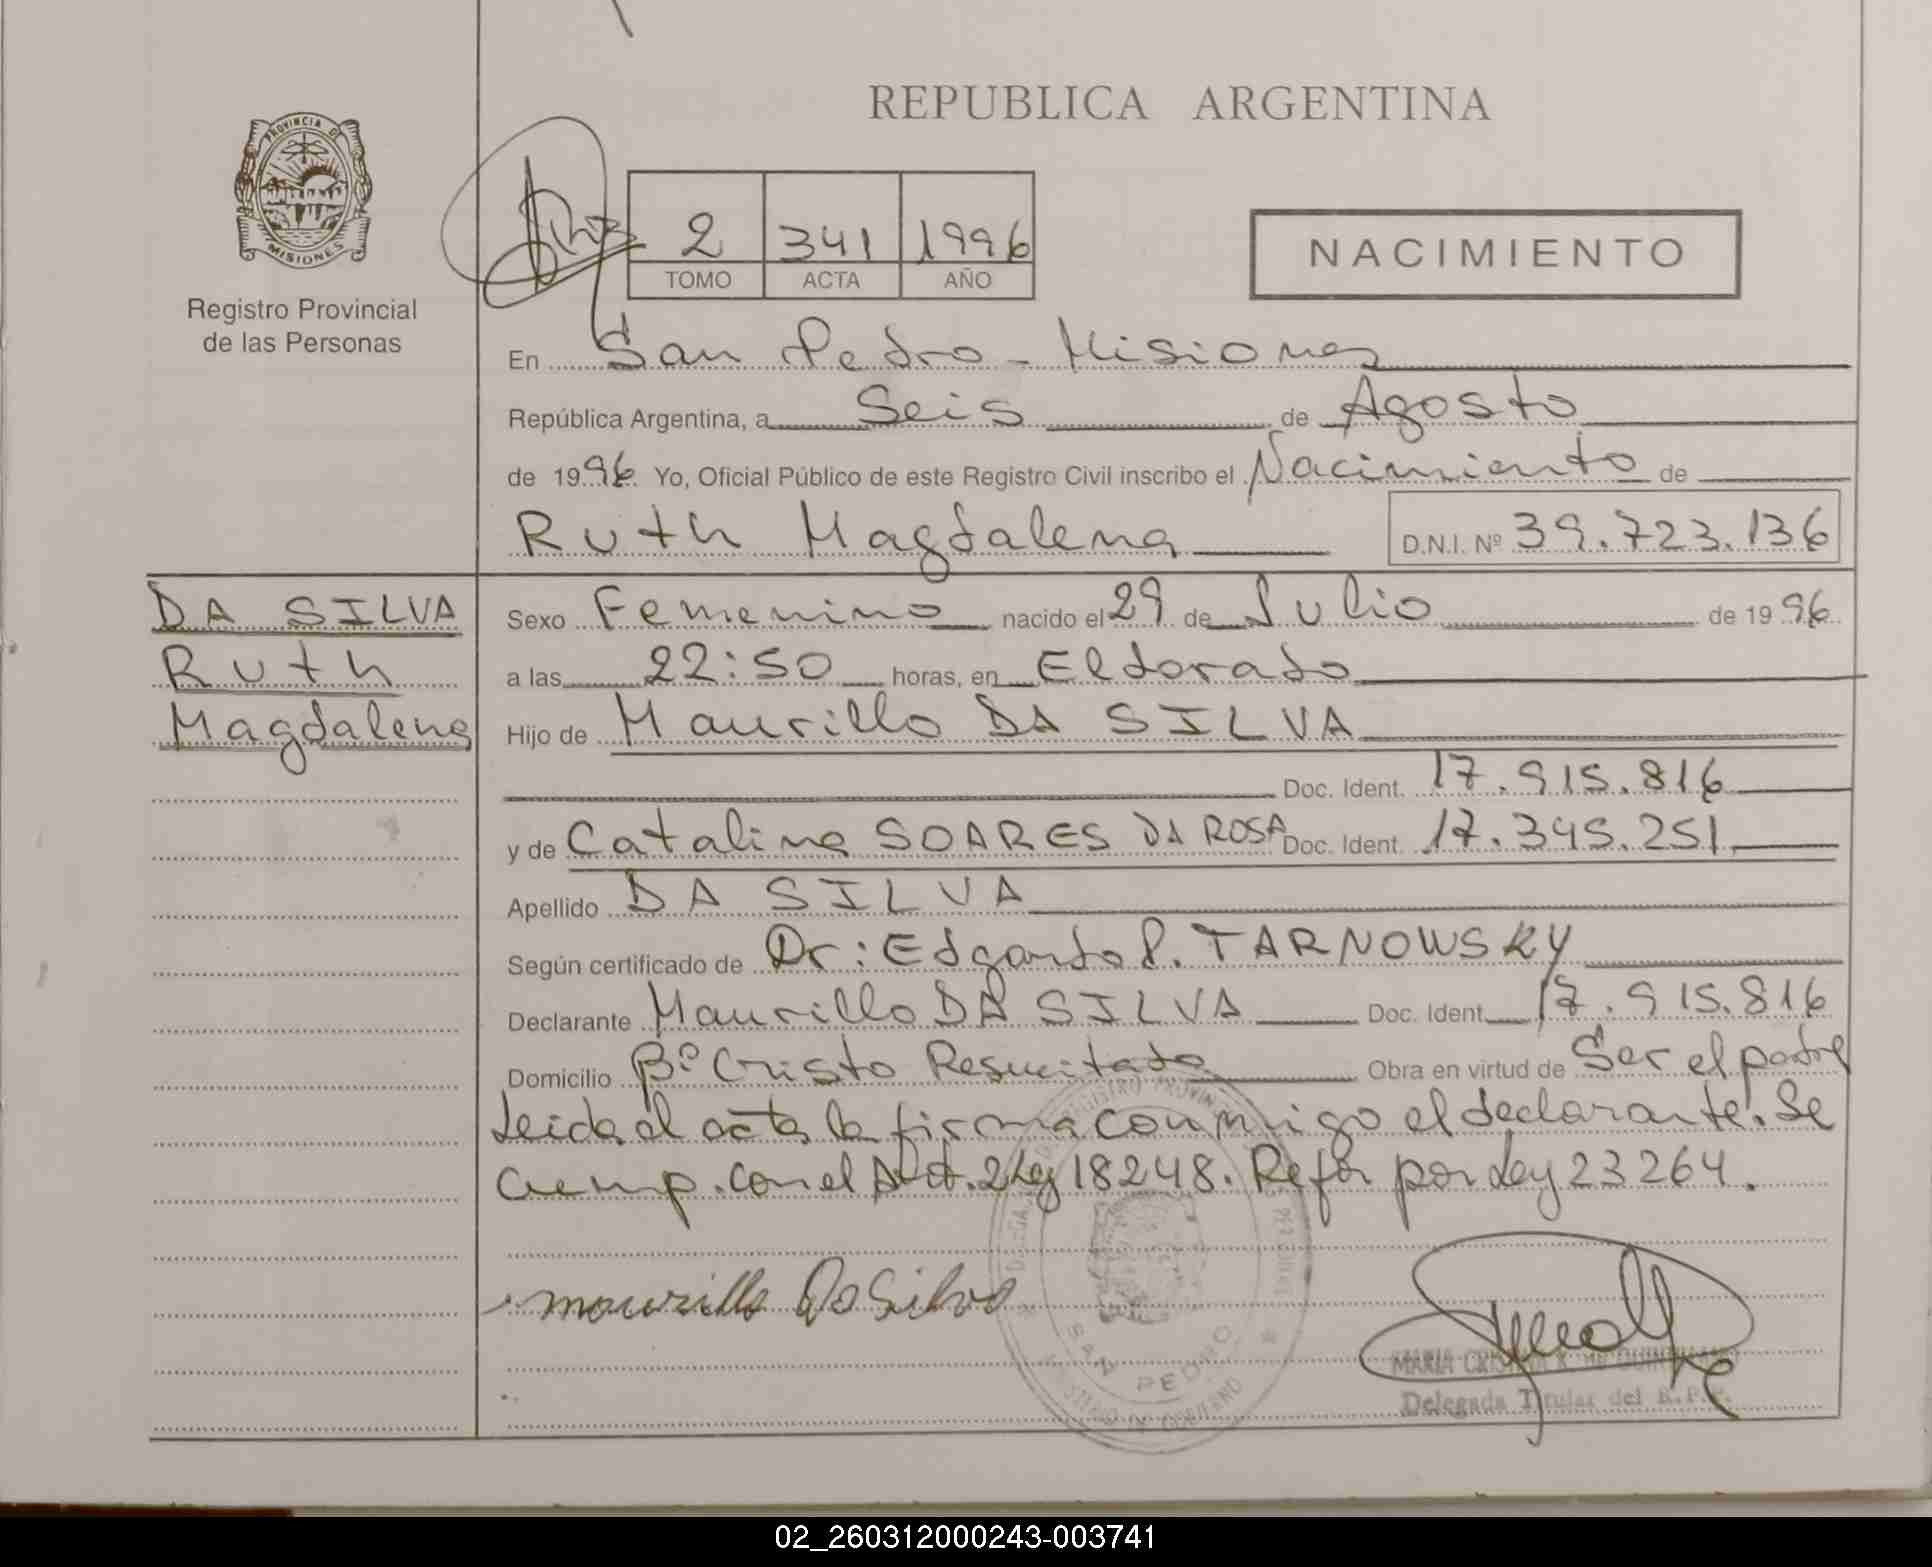 REPUBLICA ARGENTINA
PROVINCIA DE
MISIONES
Registro Provincial
de las Personas
2 341 1996
TOMO ACTA AÑO
NACIMIENTO
En San Pedro - Misiones
República Argentina, a Seis de Agosto
de 1996 Yo, Oficial Público de este Registro Civil inscribo el Nacimiento de
Ruth Magdalena D.N.I. Nº 39.723.136
DA SILVA
Ruth
Magdalena
Sexo Femenino nacido el 29 de Julio de 1996
a las 22:50 horas, en Eldorado
Hijo de Maurillo DA SILVA
Doc. Ident. 17.915.816
y de Catalina SOARES DA ROSA Doc. Ident. 17.345.251
Apellido DA SILVA
Según certificado de Dr: Edgardo P. TARNOWSKY
Declarante Maurillo DA SILVA Doc. Ident. 17.915.816
Domicilio Bº Cristo Resucitado Obra en virtud de Ser el padre
Leida el acta la firma conmigo el declarante. Se
cump. con el Art. 2 Ley 18248. Refor por Ley 23264.
mourillo Da Silva
SAN PEDRO
MINISTERIO DE GOBIERNO
MARIA
Delegada Titular del R.P.P.
02_260312000243-003741